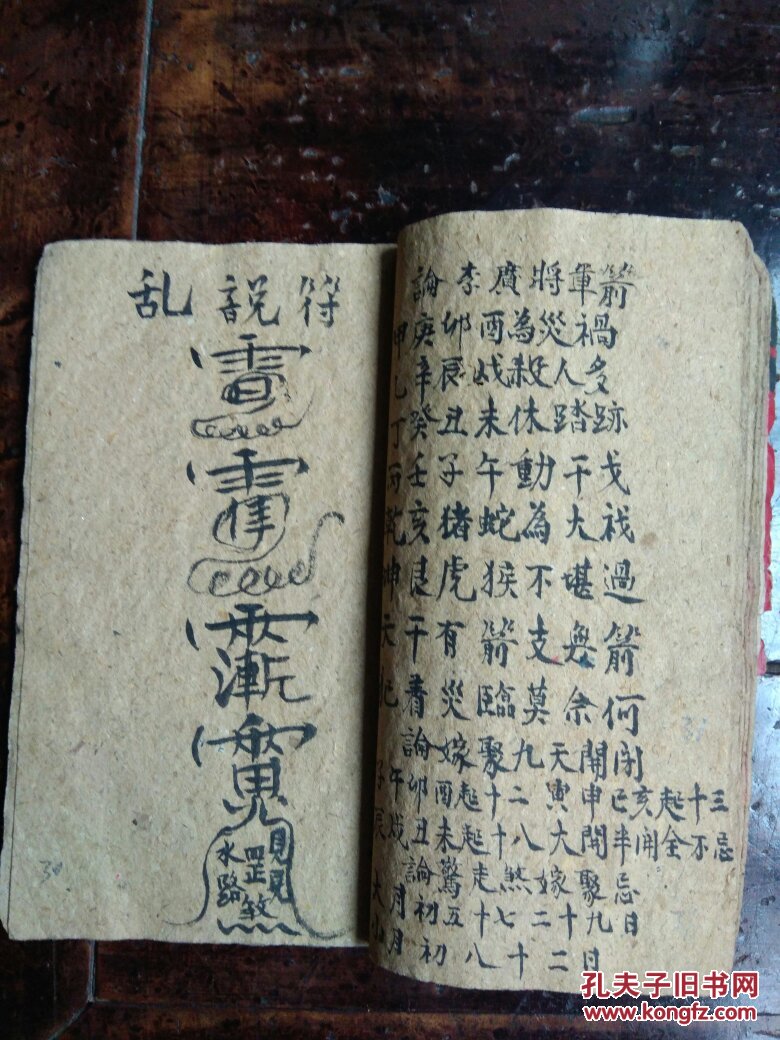 乱說符
水路
罡煞
見見
論李廣將軍箭
甲庚卯酉為災禍
乙辛辰戌殺人多
丁癸丑未休踏跡
丙壬子午動干戈
乾亥猪蛇為大禍
坤艮虎猴不堪過
天干有箭支無箭
犯着災臨莫奈何
論嫁聚九天開闭
子午卯酉起十二寅申巳亥起十三
辰戌丑未起十八大開半開全不忌
論驚走煞嫁聚忌日
大月初五十七二十九日
小月初八十二日
30
孔夫子旧书网
www.kongfz.com